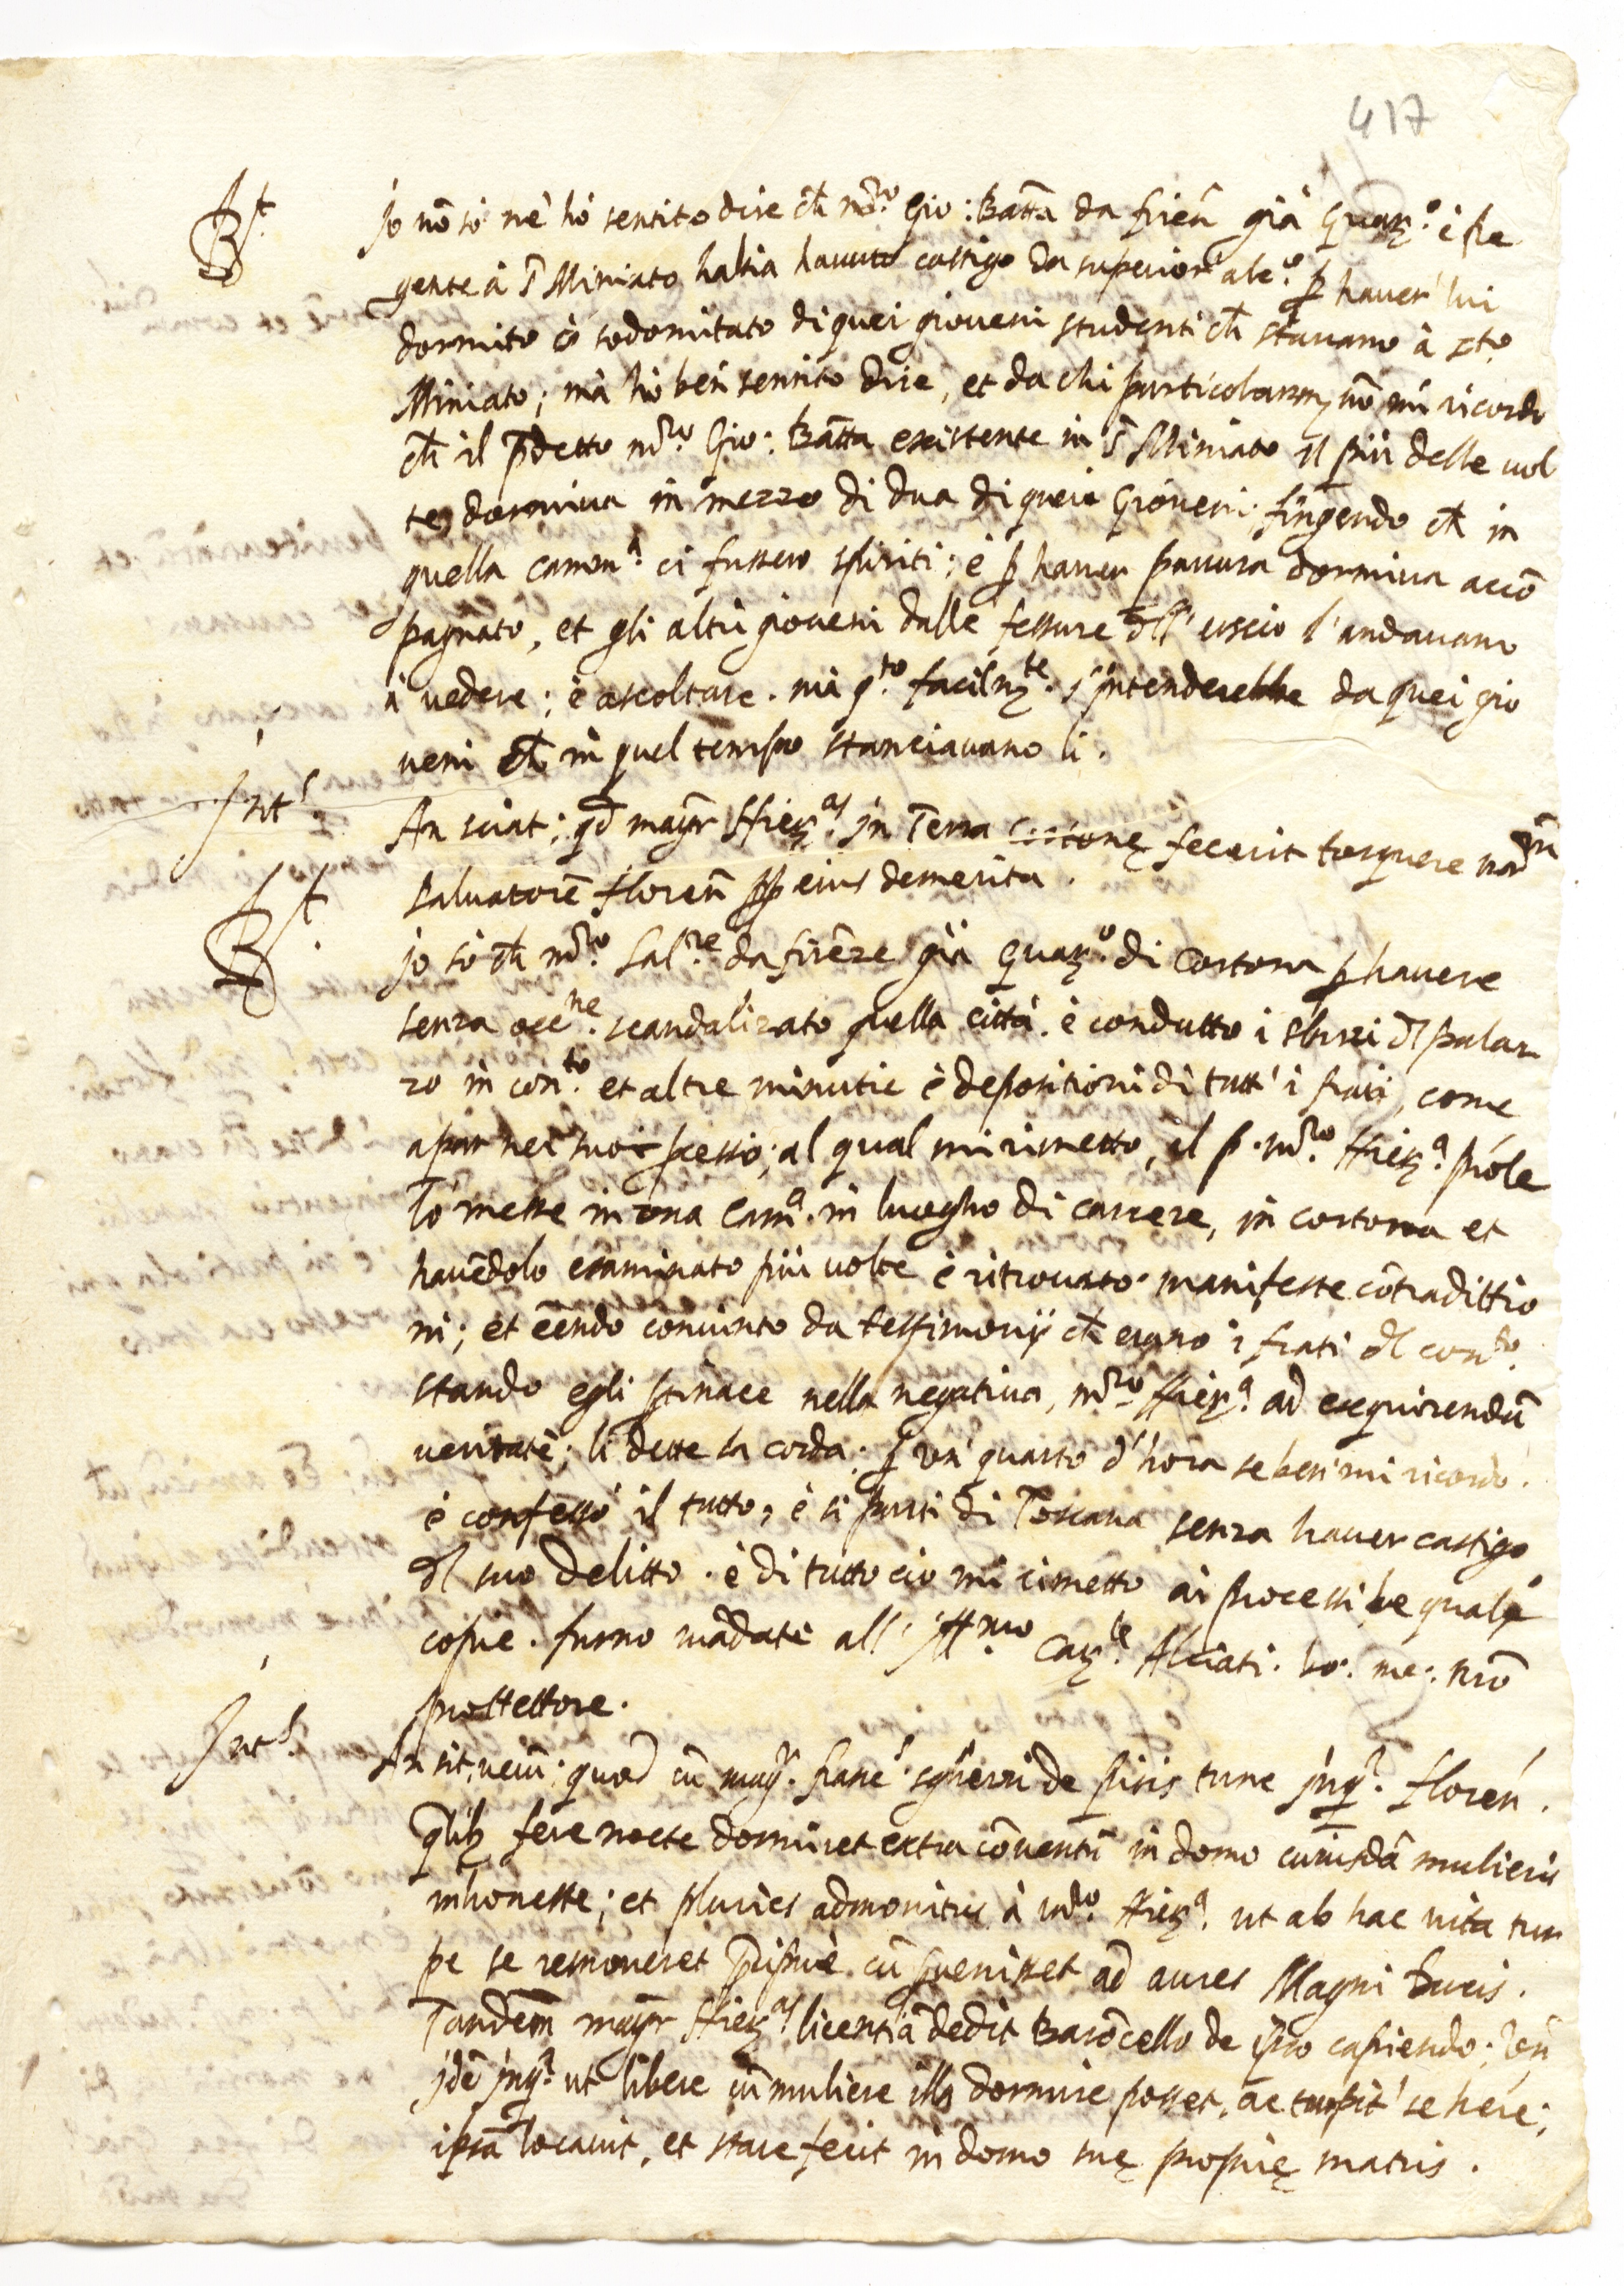 417
Rt. Jo nõ sò nè hò sentito dire ch̃ mr̃o. Gio: Batt̃a da firẽn già Guarͣ.º è Re
gente à S̃ Miniato habia hauuto castigo da superior' alc.º p̱ hauer' lui
dormito ò sodomitato di quei gioueni studenti ch̃ stauano à sto.
Miniato; mà hò ben sentito dire, et da chi particolarm, nõ mi ricordo
ch̃ il p̃detto mr̃o. Gio: Batt̃a existente in S̃ Miniato il più delle uol
te, dormiua in mezzo di dua di quei Gioueni, fingendo ch̃ in
quella camerͣ. ci fussero spiriti; è p̱ hauer pauura dormiua accõ
pagnato, et gli altri gioueni dalle fessure dll' uscio l'andauano
à vedere; è ascoltare. mà q.to facilm.te s'intenderebbe da quei gio
ueni ch̃ in quel tempo stanciauano lì.
Int.s An sciat; qd̃ magr̃ Hier.as in Terra Cortonę fecerit torquere mar̃m
Saluatorẽ florẽn pp̱ eius demerita.
Rt. Jo sò ch̃ mr̃o. Sal.re da firẽze già Guar.º di Cortona p̱ hauere
senza occ.ne scandalizato quella città. è condutto i sbirri dl palaz
zo in con.to et altre minutie è depositioni di tutt' i frati, come
apar nel suo p̱cesso; al qual mi rimetto, il p. mr̃o. Hier.ª prõle
lo messe in vna camͣ. in luogho di carcere, in cortona et
hauẽdolo esaminato più uolte è ritrouato manifeste cõtradittio
ni; et eẽndo conuinto da testimonij ch̃ erano i frati dl con.to
stando egli p̱tinace nella negatiua, mr̃o. Hier.ª ad exquirendũ
veritatẽ; li dette la corda; p̱ vn' quarto d'hora se ben mi ricordo.
è confessò il tutto; è si partì di Toscana senza hauer castigo
dl suo delitto. è di tutto ciò mi rimetto ai processi, le quale
copie. furno mãdate all' Ill.mo Car.le Alciati. bo: me: nrõ
prottettore.
Int.s An sit, uerũ; quod cũ magr̃. franc.s sgherri de pisis tunc Inq.r florẽn.
qlib; fere nocte dormiret extra cõuentũ in domo cuiusdã mulieris
inhoneste; et pluries admonitus à mr̃o. Hier.ª ut ab hac uita tur
pe se remoueret p̃cipuè cũ p̱uenisset ad aures Magni Ducis.
Tandem magr̃ Hier.as licentiã dedit Barõcello de ip̃o capiendo;
Jdẽ Inq.r ut libere cũ muliere illa dormire posset, ac turpit' se hẽre;
ipsã locauit, et stare fecit in domo suę proprię matris.